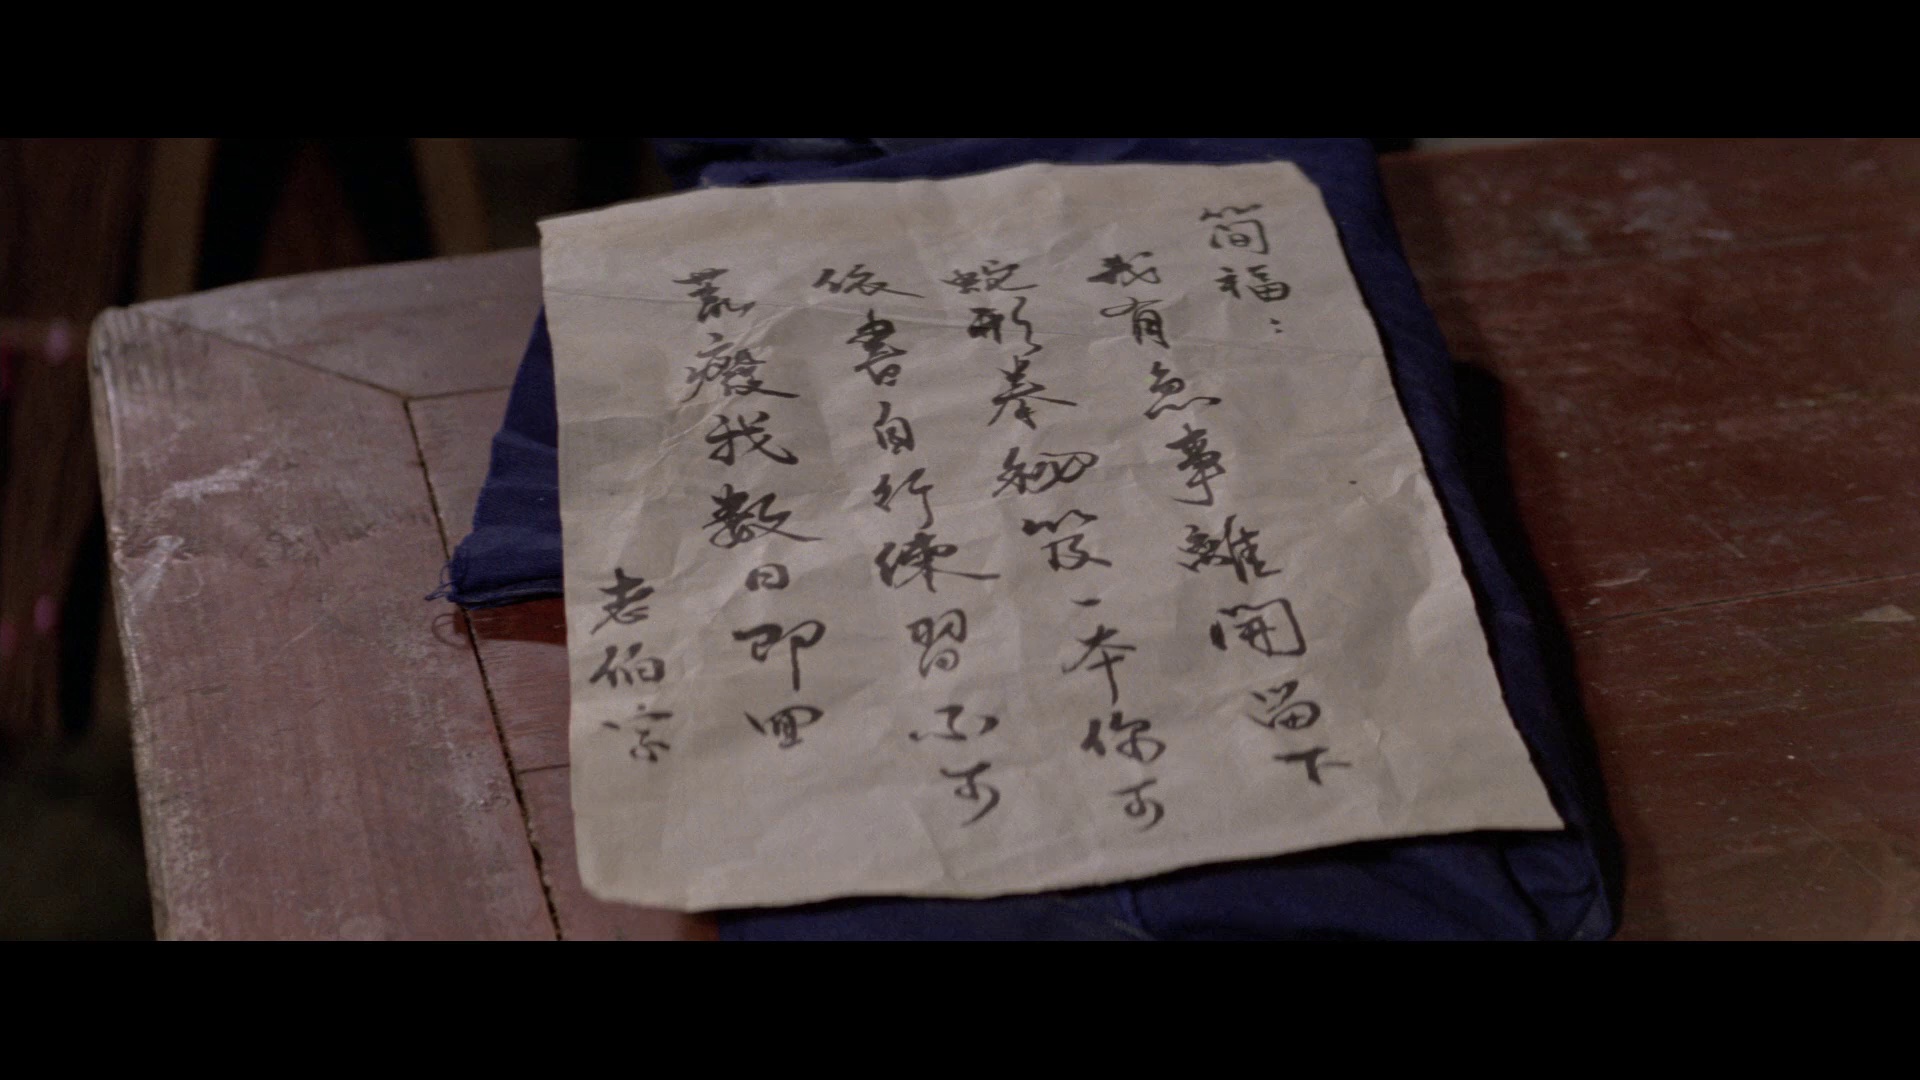 简福：
我有急事離開留下
蛇形拳秘笈一本你可
依書自行練習不可
荒廢我數日即回
老伯字